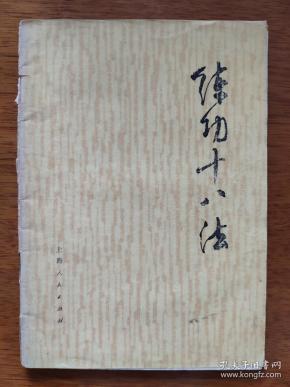 练功十八法
上海人民出版社
孔夫子旧书网
book.kongfz.com